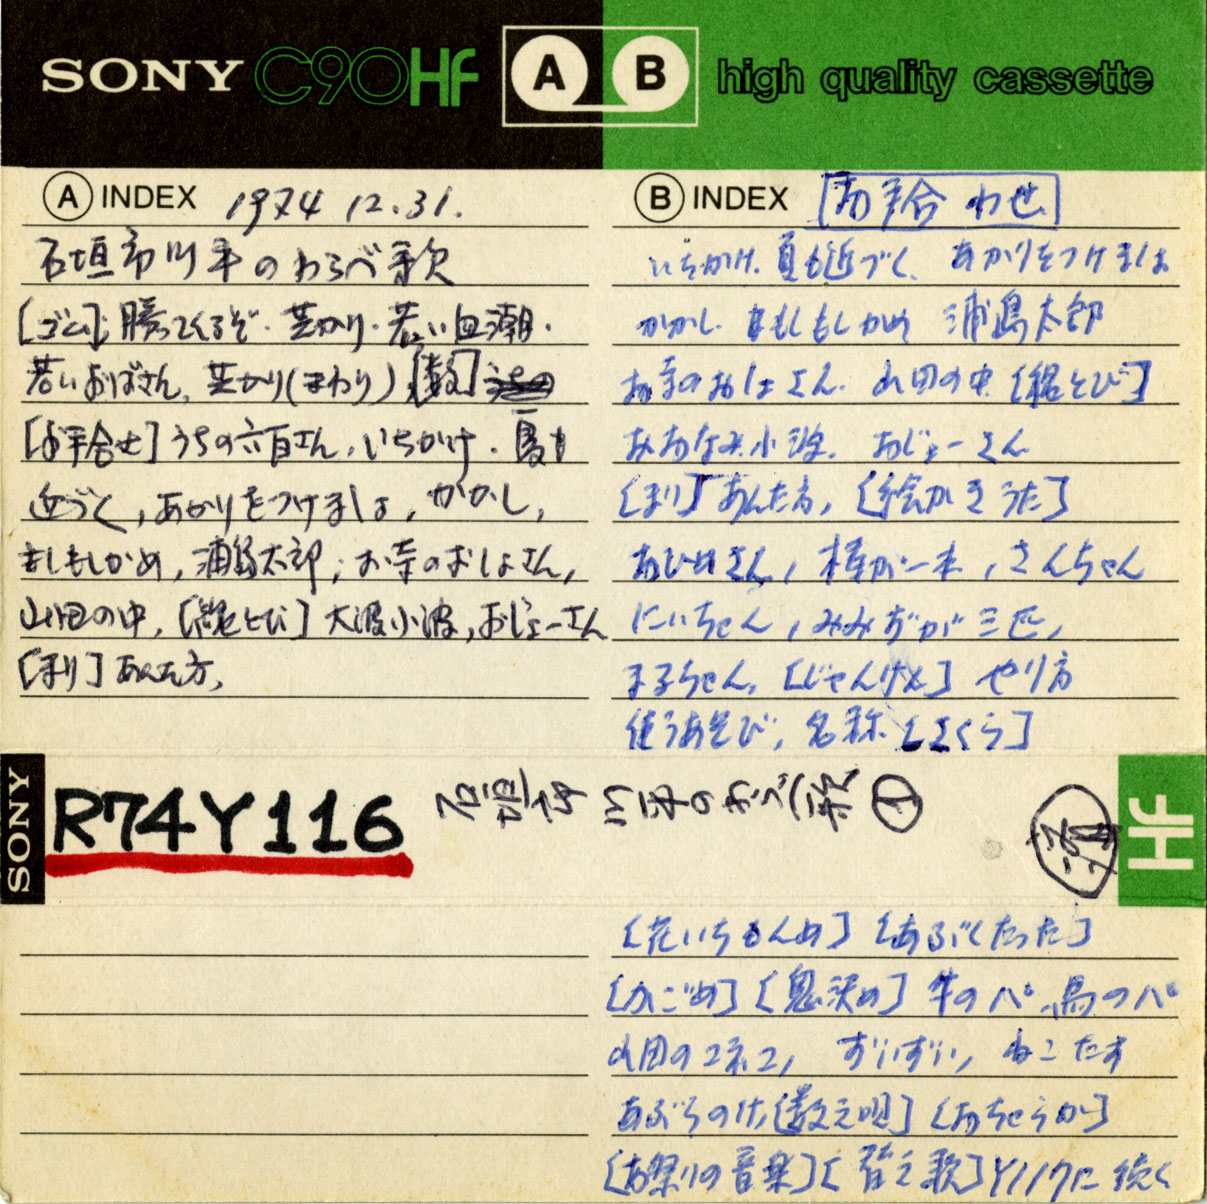 SONY C90HF A B high quality cassette
A INDEX 1974 12.31.
石垣市川平のわらべ歌
[ゴム]; 勝ってくるぞ. 芝かり. 若い血潮.
若いおばさん, 芝かり(まわり) [数]
[お手合せ] うちの六百さん, いちかけ. 夏も
近づく, あかりをつけましょ, かかし,
もしもしかめ, 浦島太郎, お寺のおしょさん,
山田の中, [縄とび] 大波小波, おじょーさん
[まり] あんた方,
B INDEX お手合わせ
いちかけ. 夏も近づく. あかりをつけましょ
かかし. もしもしかめ 浦島太郎
お寺のおしょさん. 山田の中 [縄とび]
おおなみ小波. おじょーさん
[まり] あんた方, [絵かきうた]
おひめさん, 棒が一本, さんちゃん
にいちゃん, みみずが三匹,
まるちゃん, [じゃんけん] やり方
使うあそび, 名称 [さくら]
SONY
R74Y116
石垣市 川平のわらべ歌 ①
済
HF
[花いちもんめ] [あぶくたった]
[かごめ] [鬼決め] 牛のパ, 馬のパ
山田のコネコ, ずいずい, ねこたす
あぶらのけ, [数え唄] [おちゃらか]
[お祭りの音楽] [替え歌] Y117に続く